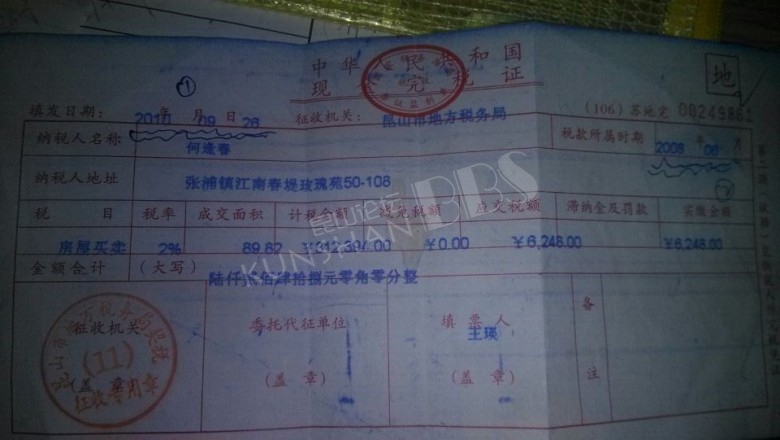 中华人民共和国
契税完税证
地
①
填发日期: 2011年 月09日 26 征收机关: 昆山市地方税务局 (106) 苏地完 00249861
纳税人名称 何逢春 税款所属时期 2008年 06月
纳税人地址 张浦镇江南春堤玫瑰苑50-108
税 目 税率 成交面积 计税金额 减免税额 应交税额 滞纳金及罚款 实缴金额
房屋买卖 2% 89.82 ¥0.00 ¥6,248.00 ¥6,248.00
金额合计 (大写) 陆仟贰佰肆拾捌元零角零分整
征收机关 委托代征单位 填票人 备
王瑛
(11)
(盖章) (盖章) 注
征收专用章
昆山论坛
KUNSHAN BBS